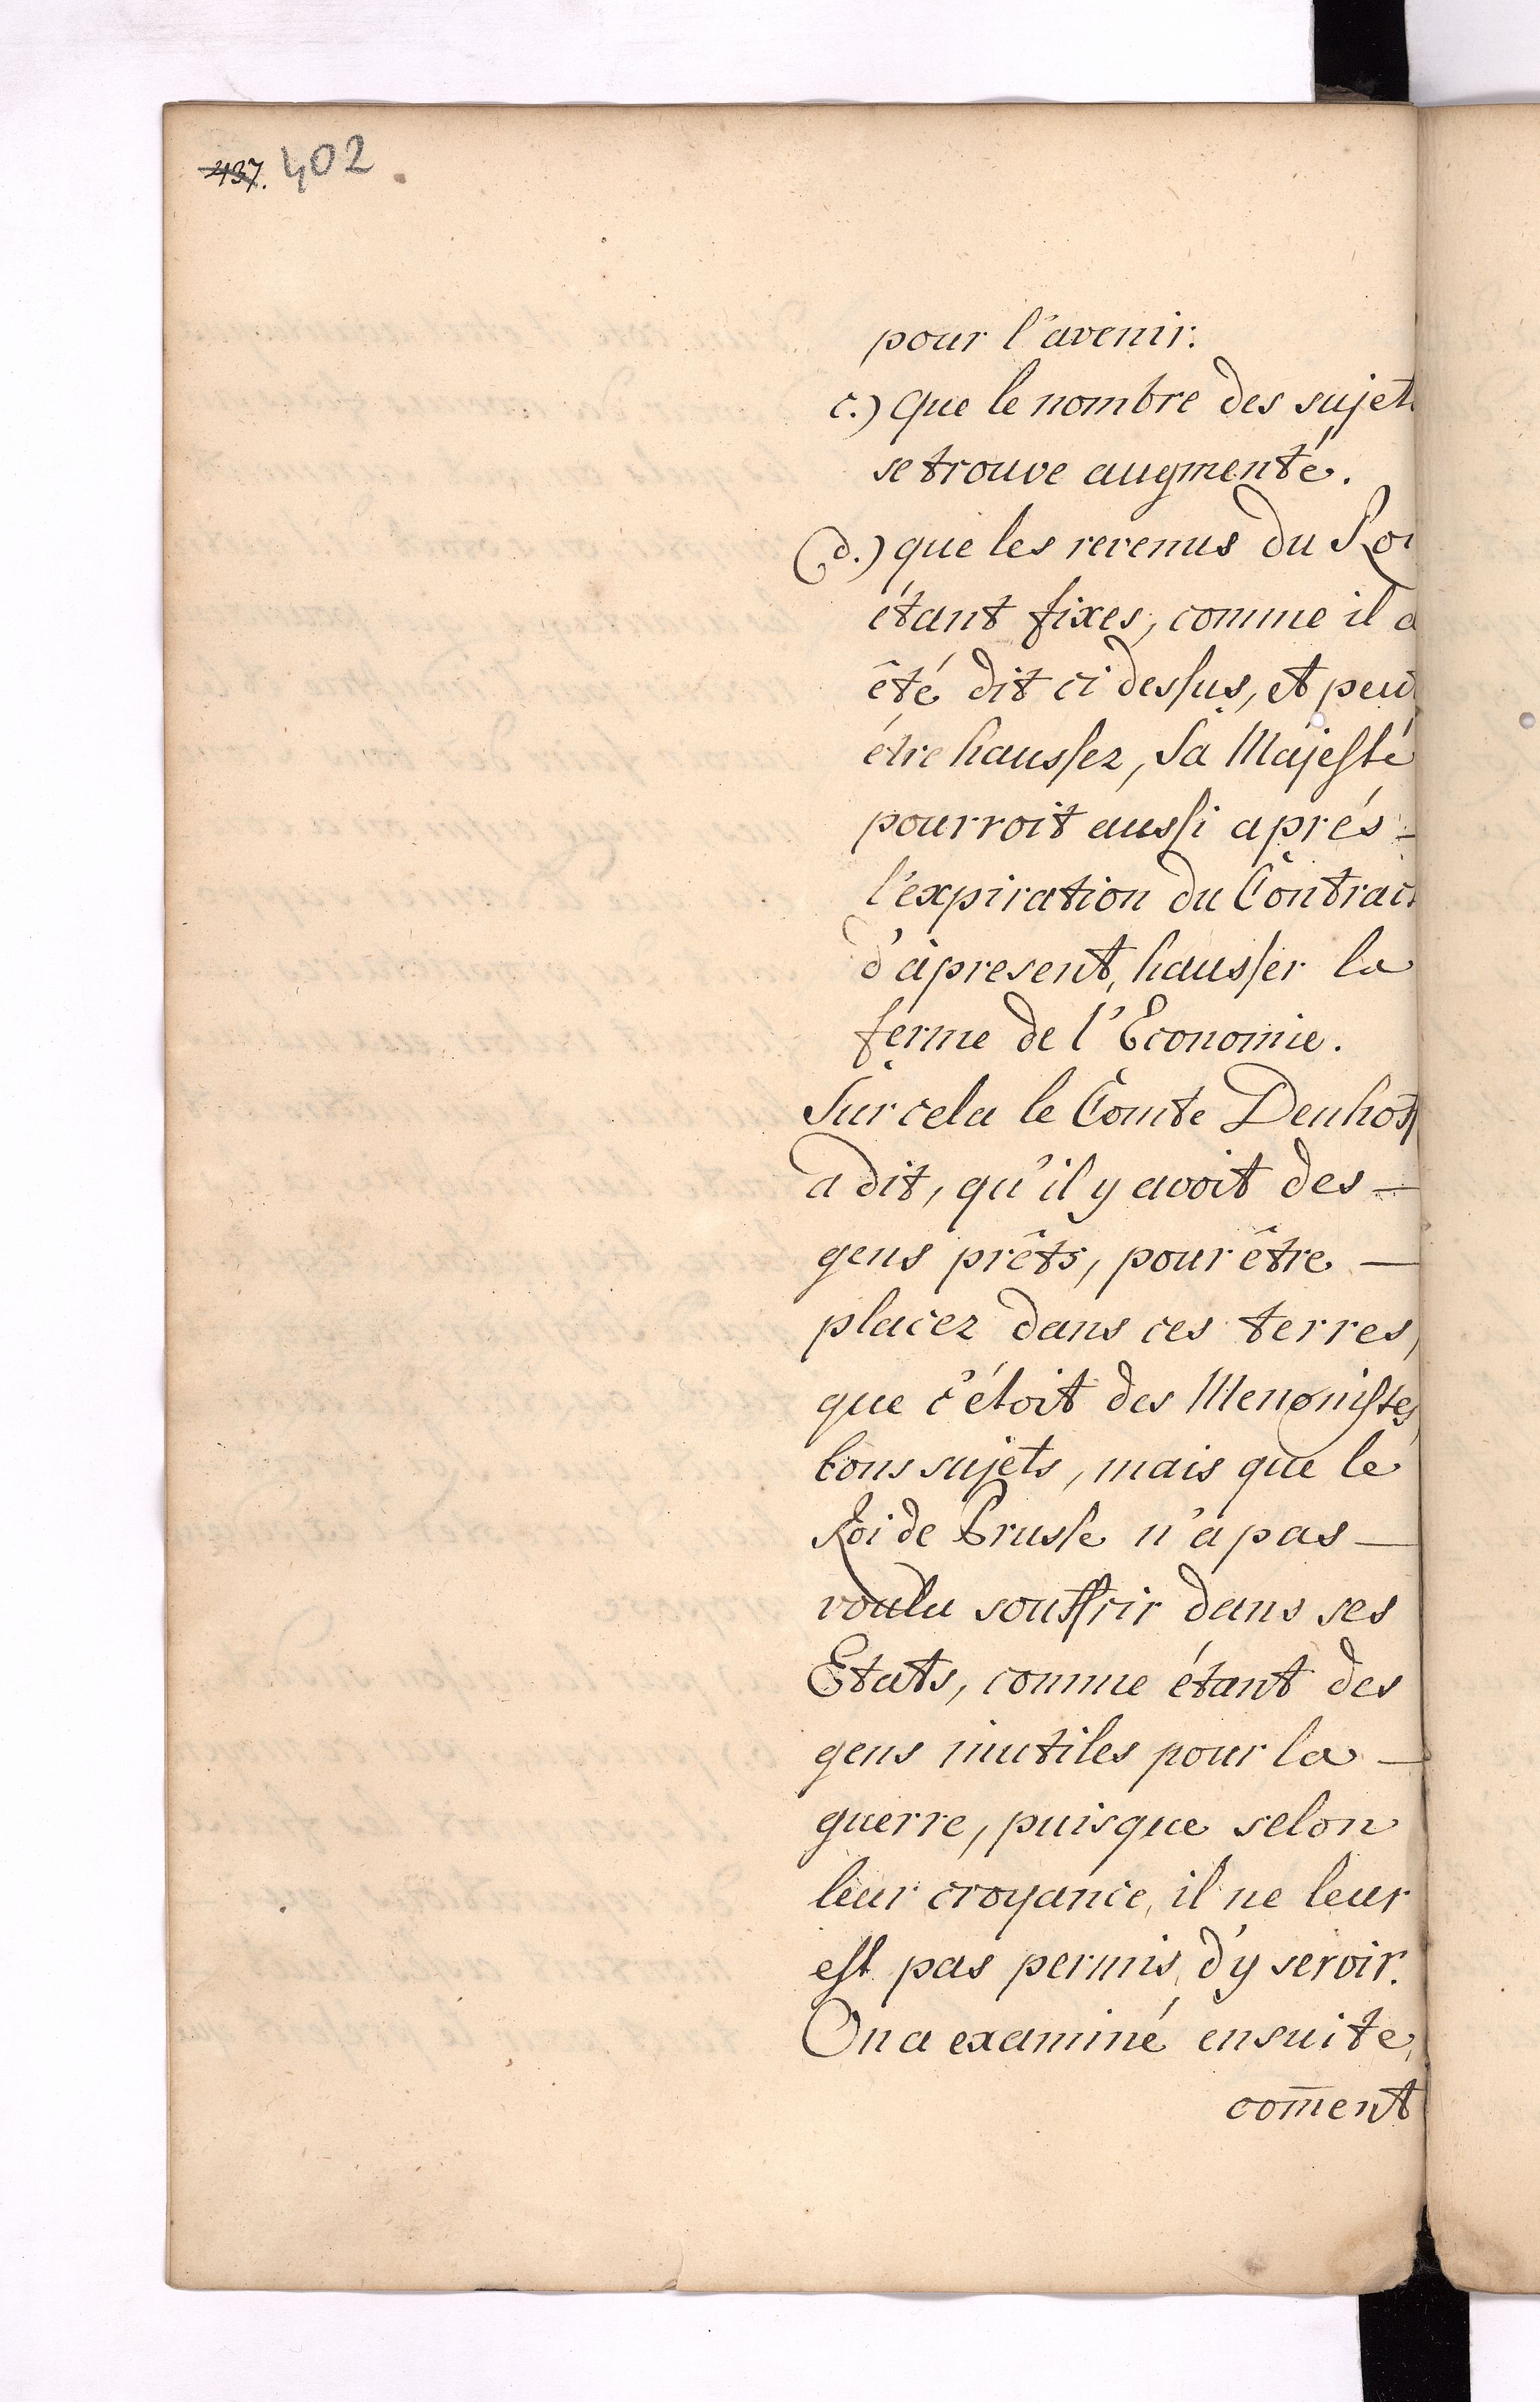 437. 402
pour l'avenir.
c.) que le nombre des sujets
se trouve augmenté.
d.) que les revenus du Roi
étant fixes, comme il a
êté dit ci dessus, et peut
étre haussez, Sa Majesté
pourroit aussi aprés —
l'expiration du Contract
d'àpresent, hausser la
ferme de l'Economie.
Sur cela le Comte Denhoff
a dit, qu'il y avoit des —
gens prêts, pour être —
placez dans ces terres,
que c'étoit des Menonistes,
bons sujets, mais que le
Roi de Prusse n'a pas —
voulu souffrir dans ses
Etats, comme étant des
gens inutiles pour la —
guerre, puisque selon
leur croyance, il ne leur
est pas permis, d'y servoir.
On a examiné ensuite,
com̄ent